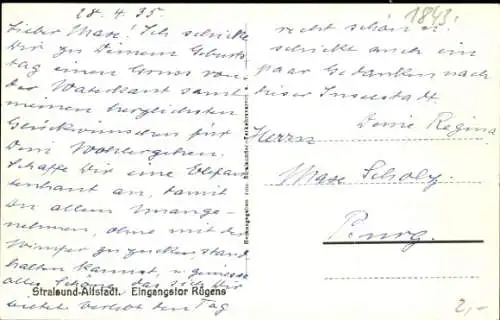 28.4.35
Lieber Max! Ich schicke
Dir zu Deinem Geburts
tag einen Gruss von
der Waterkant samt
meinen herzlichsten
Glückwünschen für
Dein Wohlergehen.
Schaffe Dir eine Elefan
tenhaut an, damit
Du allem Unange-
nehmen, ohne mit der
Wimper zu zucken, stand
halten kannst, u. geniesse
alles Schöne, das sich Dir
bietet. Verlebt den Tag
Stralsund-Altstadt. Eingangstor Rügens
1843
recht schön u.
schickt auch ein
paar Gedanken nach
dieser Inselstadt.
Deine Regina
Herrn
Max Scholz
Burg.
2,-